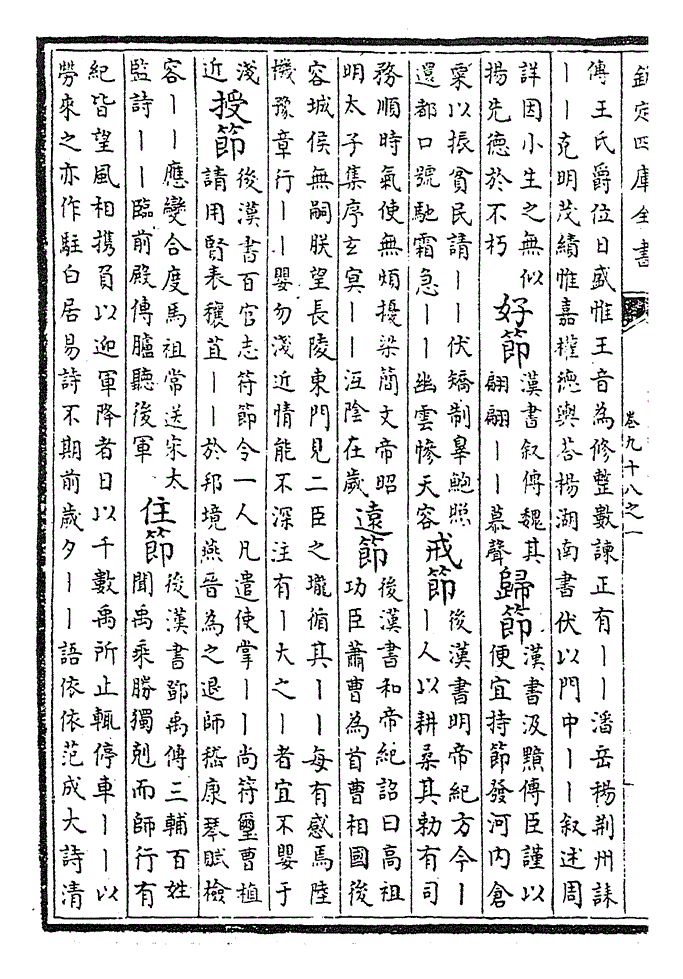 欽定四庫全書 卷九十八之一
傳王氏爵位日盛惟王音為修整數諫正有丨丨潘岳楊荆州誄
丨丨克明茂績惟嘉權德輿荅楊湖南書伏以門中丨丨叙述周
詳因小生之無似
揚先德於不朽
好節
漢書叙傳魏其
翩翩丨丨慕聲
歸節
漢書汲黯傳臣謹以
便宜持節發河内倉
粟以振貧民請丨丨伏矯制辠鮑照
還都口號馳霜急丨丨幽雲慘天容
戒節
後漢書明帝紀方今丨
丨人以耕桑其勅有司
務順時氣使無煩擾梁簡文帝昭
明太子集序玄冥丨丨沍陰在歲
遠節
後漢書和帝紀詔曰高祖
功臣蕭曹為首曹相國後
容城侯無嗣朕望長陵東門見二臣之壠循其丨丨每有感焉陸
機豫章行丨丨嬰勿淺近情能不深注有丨大之丨者宜不嬰于
淺
近
授節
後漢書百官志符節令一人凡遣使掌丨丨尚符璽曹植
請用賢表穰苴丨丨於邦境燕晉為之退師嵇康琴賦檢
容丨丨應變合度馬祖常送宋太
監詩丨丨臨前殿傳臚聽後軍
住節
後漢書鄧禹傳三輔百姓
聞禹乘勝獨剋而師行有
紀皆望風相携負以迎軍降者日以千數禹所止輒停車丨丨以
勞來之亦作駐白居易詩不期前歲夕丨丨語依依范成大詩清